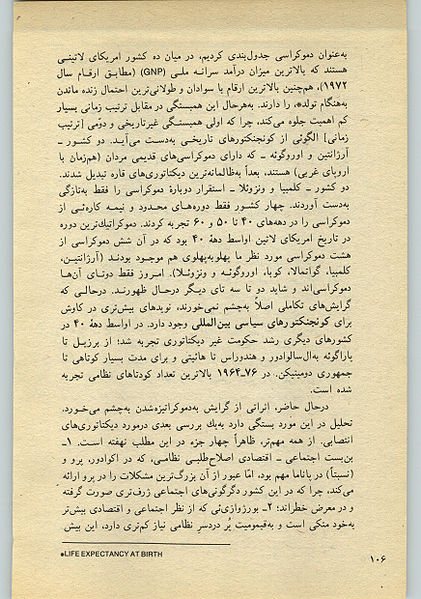 به‌عنوان دموکراسی جدول‌بندی کردیم، در میان ده کشور امریکای لاتینی
هستند که بالاترین میزان درآمد سرانه ملی (GNP) (مطابق ارقام سال
۱۹۷۲)، هم‌چنین بالاترین ارقام با سوادان و طولانی‌ترین احتمال زنده ماندن
به‌هنگام تولد●، را دارند. به‌هرحال این همبستگی در مقابل ترتیب زمانی بسیار
کم اهمیت جلوه می‌کند، چرا که اولی همبستگی غیرتاریخی و دوّمی [ترتیب
زمانی] الگوئی از کونجنکتورهای تاریخی به‌دست می‌آید. دو کشور ـ
آرژانتین و اوروگوئه ـ که دارای دموکراسی‌های قدیمی مردان (همزمان با
اروپای غربی) هستند، بعداً به‌ظالمانه‌ترین دیکتاتوری‌های قاره تبدیل شدند.
دو کشور ـ کلمبیا و ونزوئلا ـ استقرار دوبارهٔ دموکراسی را فقط به‌تازگی
به‌دست آوردند. چهار کشور فقط دوره‌های محدود و نیمه کاره‌ئی از
دموکراسی را در دهه‌های ۴۰ تا ۵۰ و ۶۰ تجربه کردند. دموکراتیك‌ترین دوره
در تاریخ امریکای لاتین اواسط دههٔ ۴۰ بود که در آن شش دموکراسی از
هشت دموکراسی مورد نظر ما پهلوبه‌پهلوی هم موجود بودند (آرژانتین،
کلمبیا، گواتمالا، کوبا، اوروگوئه و ونزوئلا). امروز فقط دوتای آن‌ها
دموکراسی‌اند و شاید دو تا سه تای دیگر درحال ظهورند. درحالی که
گرایش‌های تکاملی اصلاً به‌چشم نمی‌خورند، نویدهای بیش‌تری در کاوش
برای کونجنکتورهای سیاسی بین‌المللی وجود دارد. در اواسط دههٔ ۴۰ در
کشورهای دیگری رشد حکومت غیر دیکتاتوری تجربه شد؛ از برزیل تا
پاراگوئه به‌ال‌سالوادور و هندوراس تا هائیتی و برای مدت بسیار کوتاهی تا
جمهوری دومینیکن. در ۷۶ـ۱۹۶۴ بالاترین تعداد کودتاهای نظامی تجربه
شده است.
درحال حاضر، اثراتی از گرایش به‌دموکراتیزه‌شدن به‌چشم می‌خورد.
تحلیل در این مورد بستگی دارد به‌یك بررسی بعدی درمورد دیکتاتوری‌های
انتصابی. از همه مهم‌تر، ظاهراً چهار جزء در این مطلب نهفته است. ۱ـ
بن‌بست اجتماعی ـ اقتصادی اصلاح‌طلبی نظامی، که در اکوادور، پرو و
(نسبتاً) در پاناما مهم بود، امّا عبور از آن بزرگ‌ترین مشکلات را در پرو ارائه
می‌کند، چرا که در این کشور دگرگونی‌های اجتماعی ژرف‌تری صورت گرفته
و در معرض خطراند؛ ۲ـ بورژوازی‌ئی که از نظر اجتماعی و اقتصادی بیش‌تر
به‌خود متکی است و به‌قیمومیت پُر دردسرِ نظامی نیاز کم‌تری دارد، این بیش
●LIFE EXPECTANCY AT BIRTH
۱۰۶